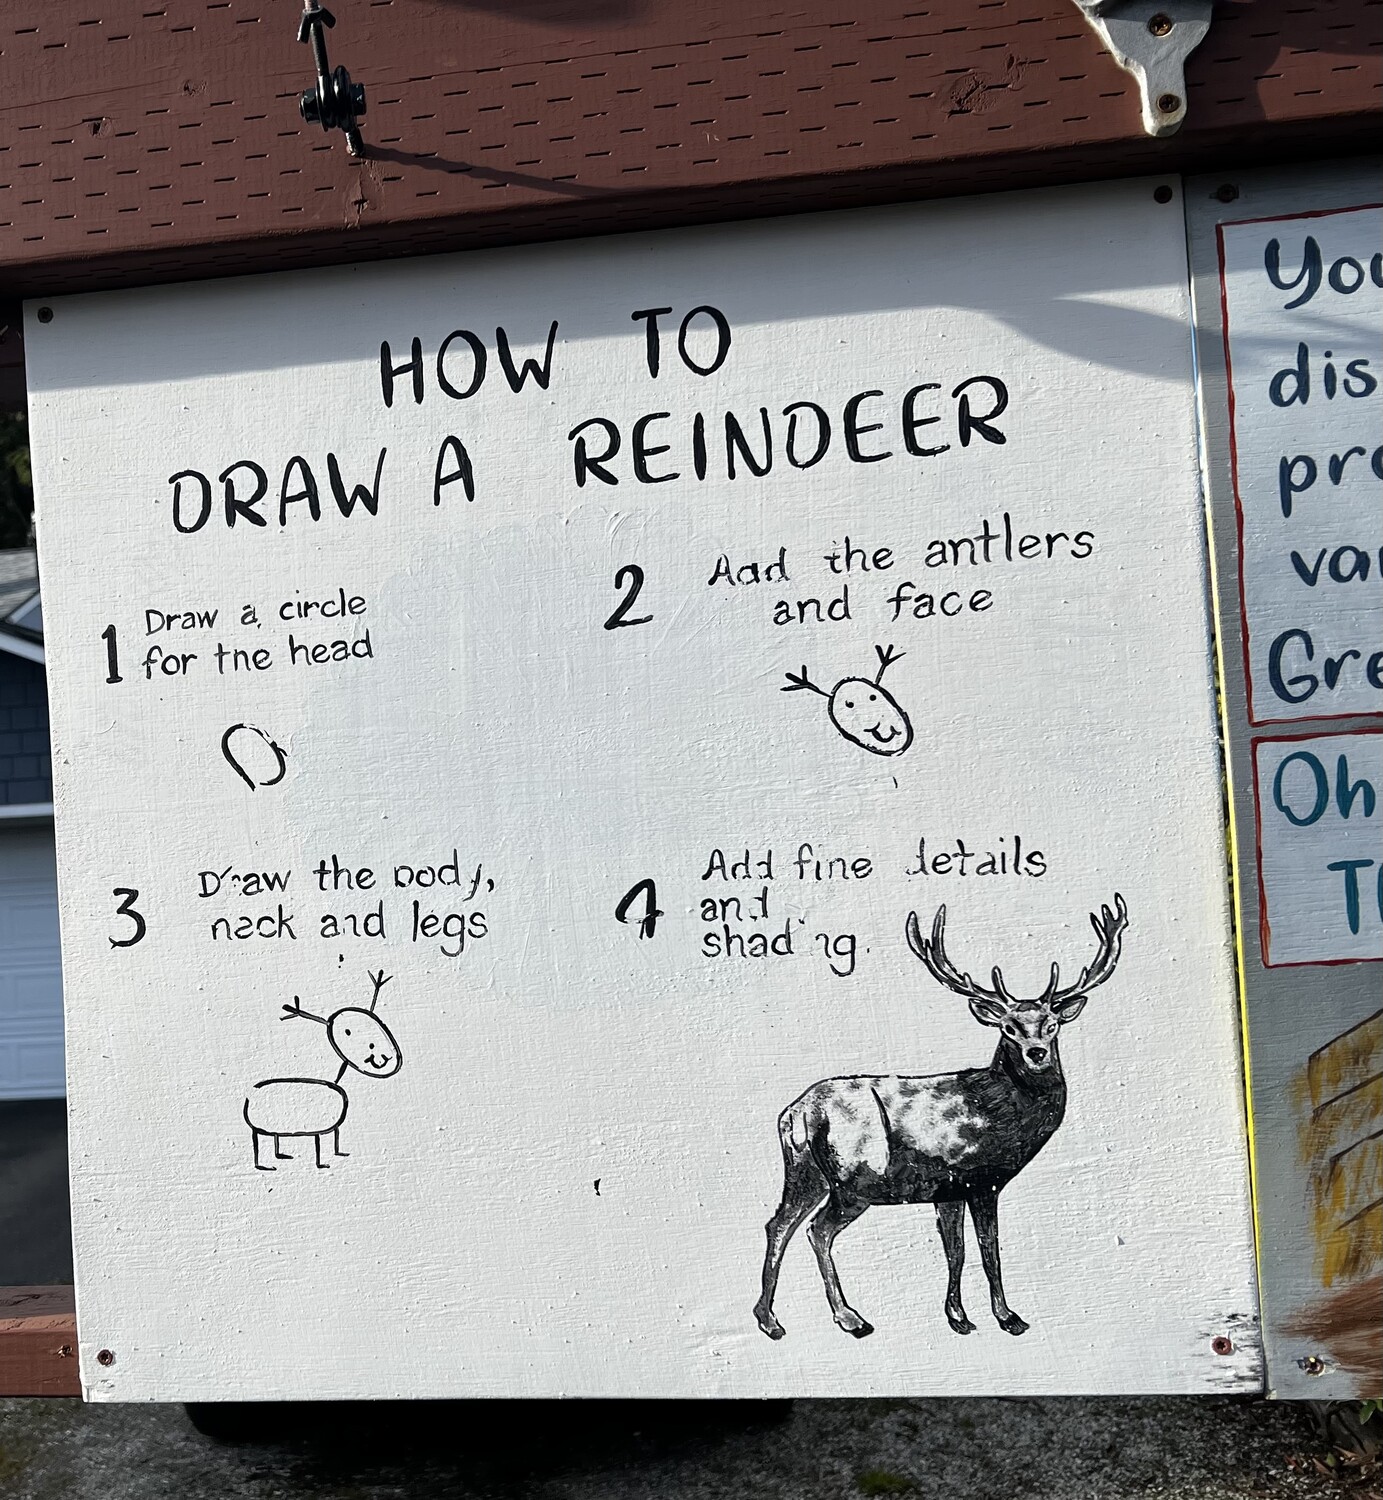 HOW TO
DRAW A REINDEER
1 Draw a circle
for the head
2 Add the antlers
and face
3 Draw the body,
neck and legs
4 Add fine details
and
shading.
You
dis
pro
va
Gre
Oh
T